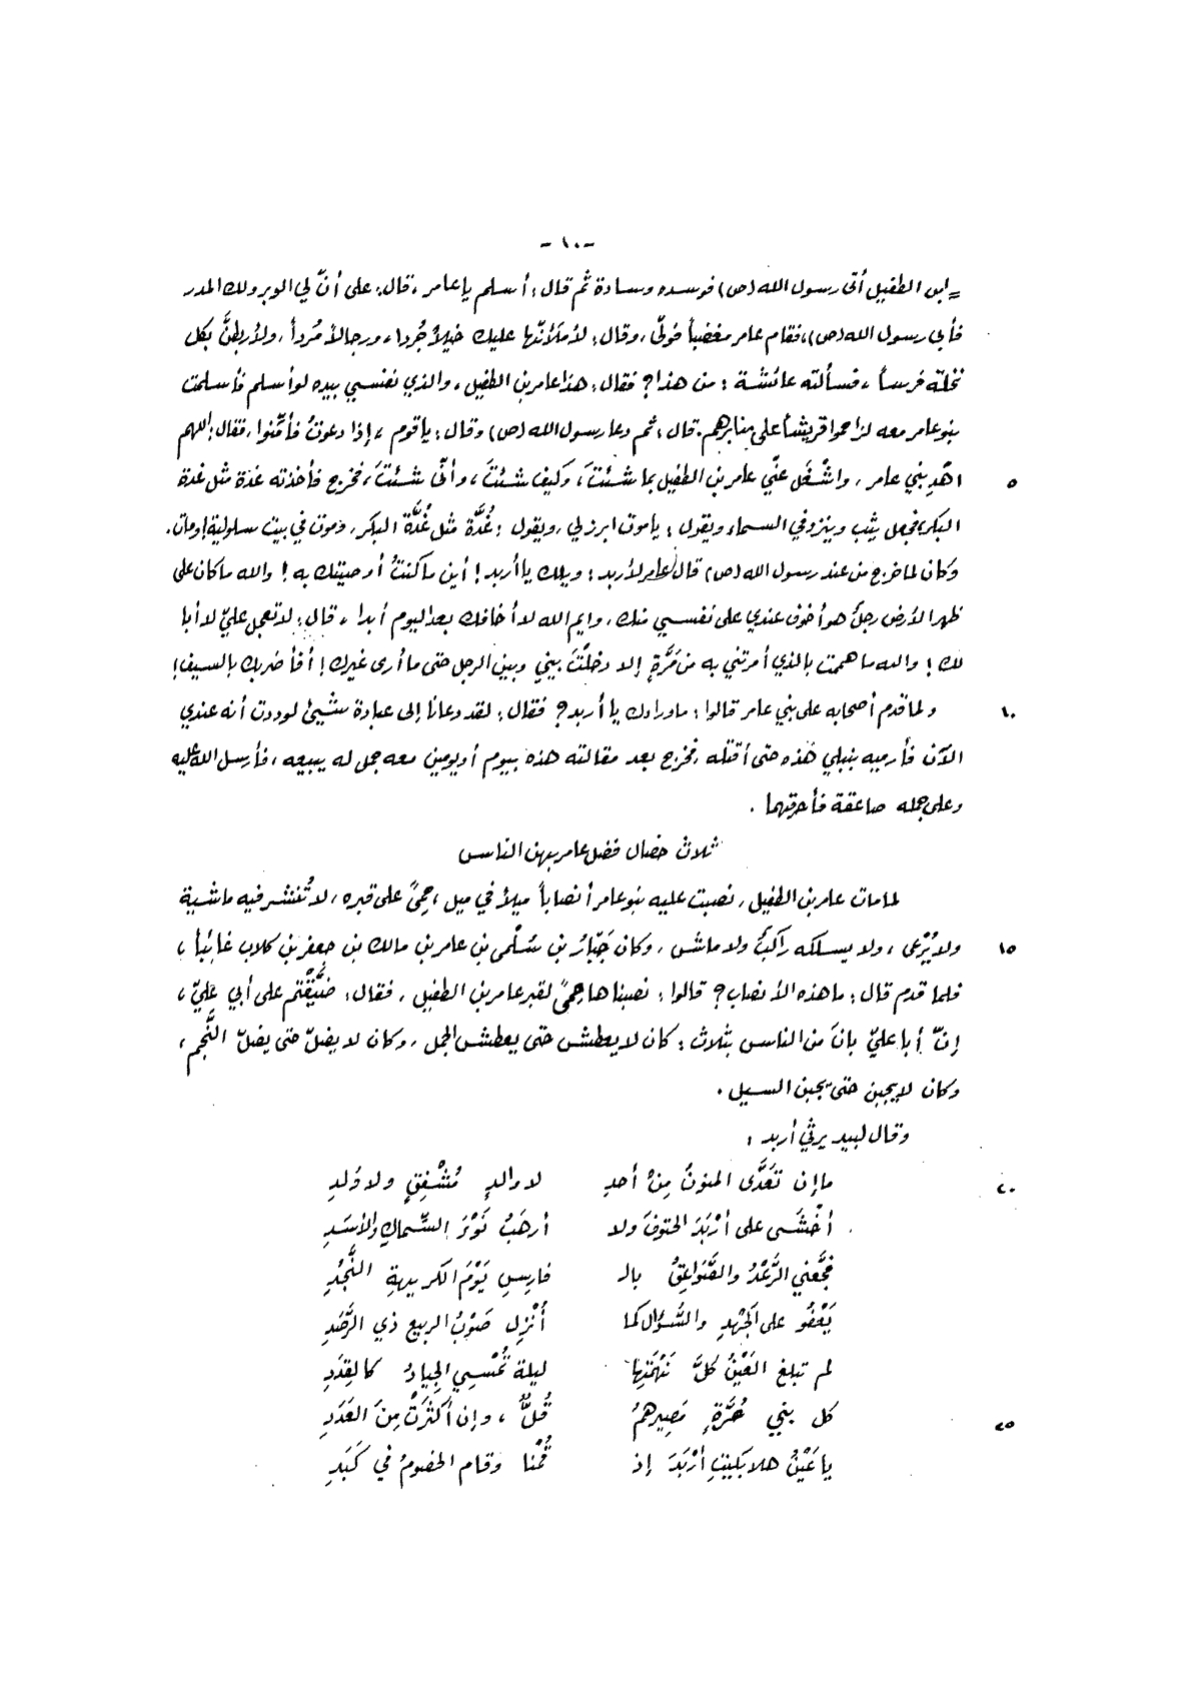 -١٠-
= ابن الطفيل أتى رسول الله (ص) فوسده وسادة ثم قال: أسلم يا عامر، قال: على أنّ لي الوبر ولك المدر
فأبى رسول الله (ص)، فقام عامر مغضباً فولّى، وقال: لأملأنّها عليك خيلاً جُردا، ورجالاً مُرداً، ولأربطنَّ بكل
نخلة فرساً، فسألته عائشة: من هذا؟ فقال: هذا عامر بن الطفيل، والذي نفسي بيده لو أسلم فأسلمت
بنو عامر معه لزاحموا قريشاً على منابرهم. قال: ثم دعا رسول الله (ص) وقال: يا قوم، إذا دعوتُ فأمّنوا، فقال: اللهم
٥ اهْدِ بني عامر، واشْغَل عنّي عامر بن الطفيل بما شئتَ، وكيف شئتَ، وأنّى شئتَ، فخرج فأخذته غدّة مثل غدة
البكر، فجعل يثب وينزو في السماء ويقول: يا موت ابرز لي، ويقول: غُدَّة مثل غُدَّة البكر، وموت في بيت سلولية! ومات.
وكان لما خرج من عند رسول الله (ص) قال عامر لأربد: ويلك يا أربد! أين ما كنتُ أوصيتك به! والله ما كان على
ظهر الأرض رجلٌ هو أخوف عندي على نفسي منك، وايم الله لا أخافك بعد اليوم أبدا، قال: لا تعجل عليّ لا أبا
لك! والله ما هممت بالذي أمرتني به من مَرَّةٍ إلا دخلْتَ بيني وبين الرجل حتى ما أرى غيرك! أفأضربك بالسيف!
١٠ ولما قدم أصحابه على بني عامر قالوا: ما وراءك يا أربد؟ فقال: لقد دعانا إلى عبادة شيئ لوددت أنه عندي
الآن فأرميه بنبلي هذه حتى أقتله، فخرج بعد مقالته هذه بيوم أو يومين معه جمل له يبيعه، فأرسل الله عليه
وعلى جمله صاعقة فأحرقتهما.
ثلاث خصال فضل عامر بهن الناس
لما مات عامر بن الطفيل، نصبت عليه بنو عامر أنصاباً ميلاً في ميل، حِمىً على قبره، لا تُنشر فيه ماشية
١٥ ولا يُرْعى، ولا يسلكه راكبٌ ولا ماش، وكان جَبّارُ بن سُلْمى بن عامر بن مالك بن جعفر بن كلاب غائباً،
فلما قدم قال: ما هذه الأنصاب؟ قالوا: نصبناها حِمىً لقبر عامر بن الطفيل، فقال: ضَيَّقْتم على أبي عَليّ،
إنّ أبا عليّ بانَ من الناس بثلاث: كان لا يعطش حتى يعطش الجمل، وكان لا يضلّ حتى يضلّ النَّجم،
وكان لا يجبن حتى يجبن السيل.
وقال لبيد يرثي أربد:
٢٠ ما إن تَعَدَّى المنونُ مِنْ أحدِ لا والدٍ مُشْفِقٍ ولا وَلدِ
أخْشَى على أرْبَدَ الحتوفَ ولا أرهَبُ نَوْءَ السِّماكِ والأسَدِ
فجَّعني الرَّعْدُ والصَّوَاعِقُ بالـ فارسِ يَوْمَ الكريهةِ النَّجُدِ
يَعْفُو على الجَهْدِ والسُّؤال كما أُنْزِلَ صَوْبُ الربيعِ ذي الرَّصَدِ
لم تبلغ العَيْنُ كلَّ نَهْمَتِها ليلة تُمْسِي الجِيادُ كالقِدَدِ
٢٥ كل بني حُرَّةٍ مَصِيرهمُ قُلٌّ، وإن أكثرَتْ مِنَ العَدَدِ
يا عَيْنُ هلا بَكَيْتِ أرْبَدَ إذ قُمْنا وقام الخصومُ في كَبَدِ